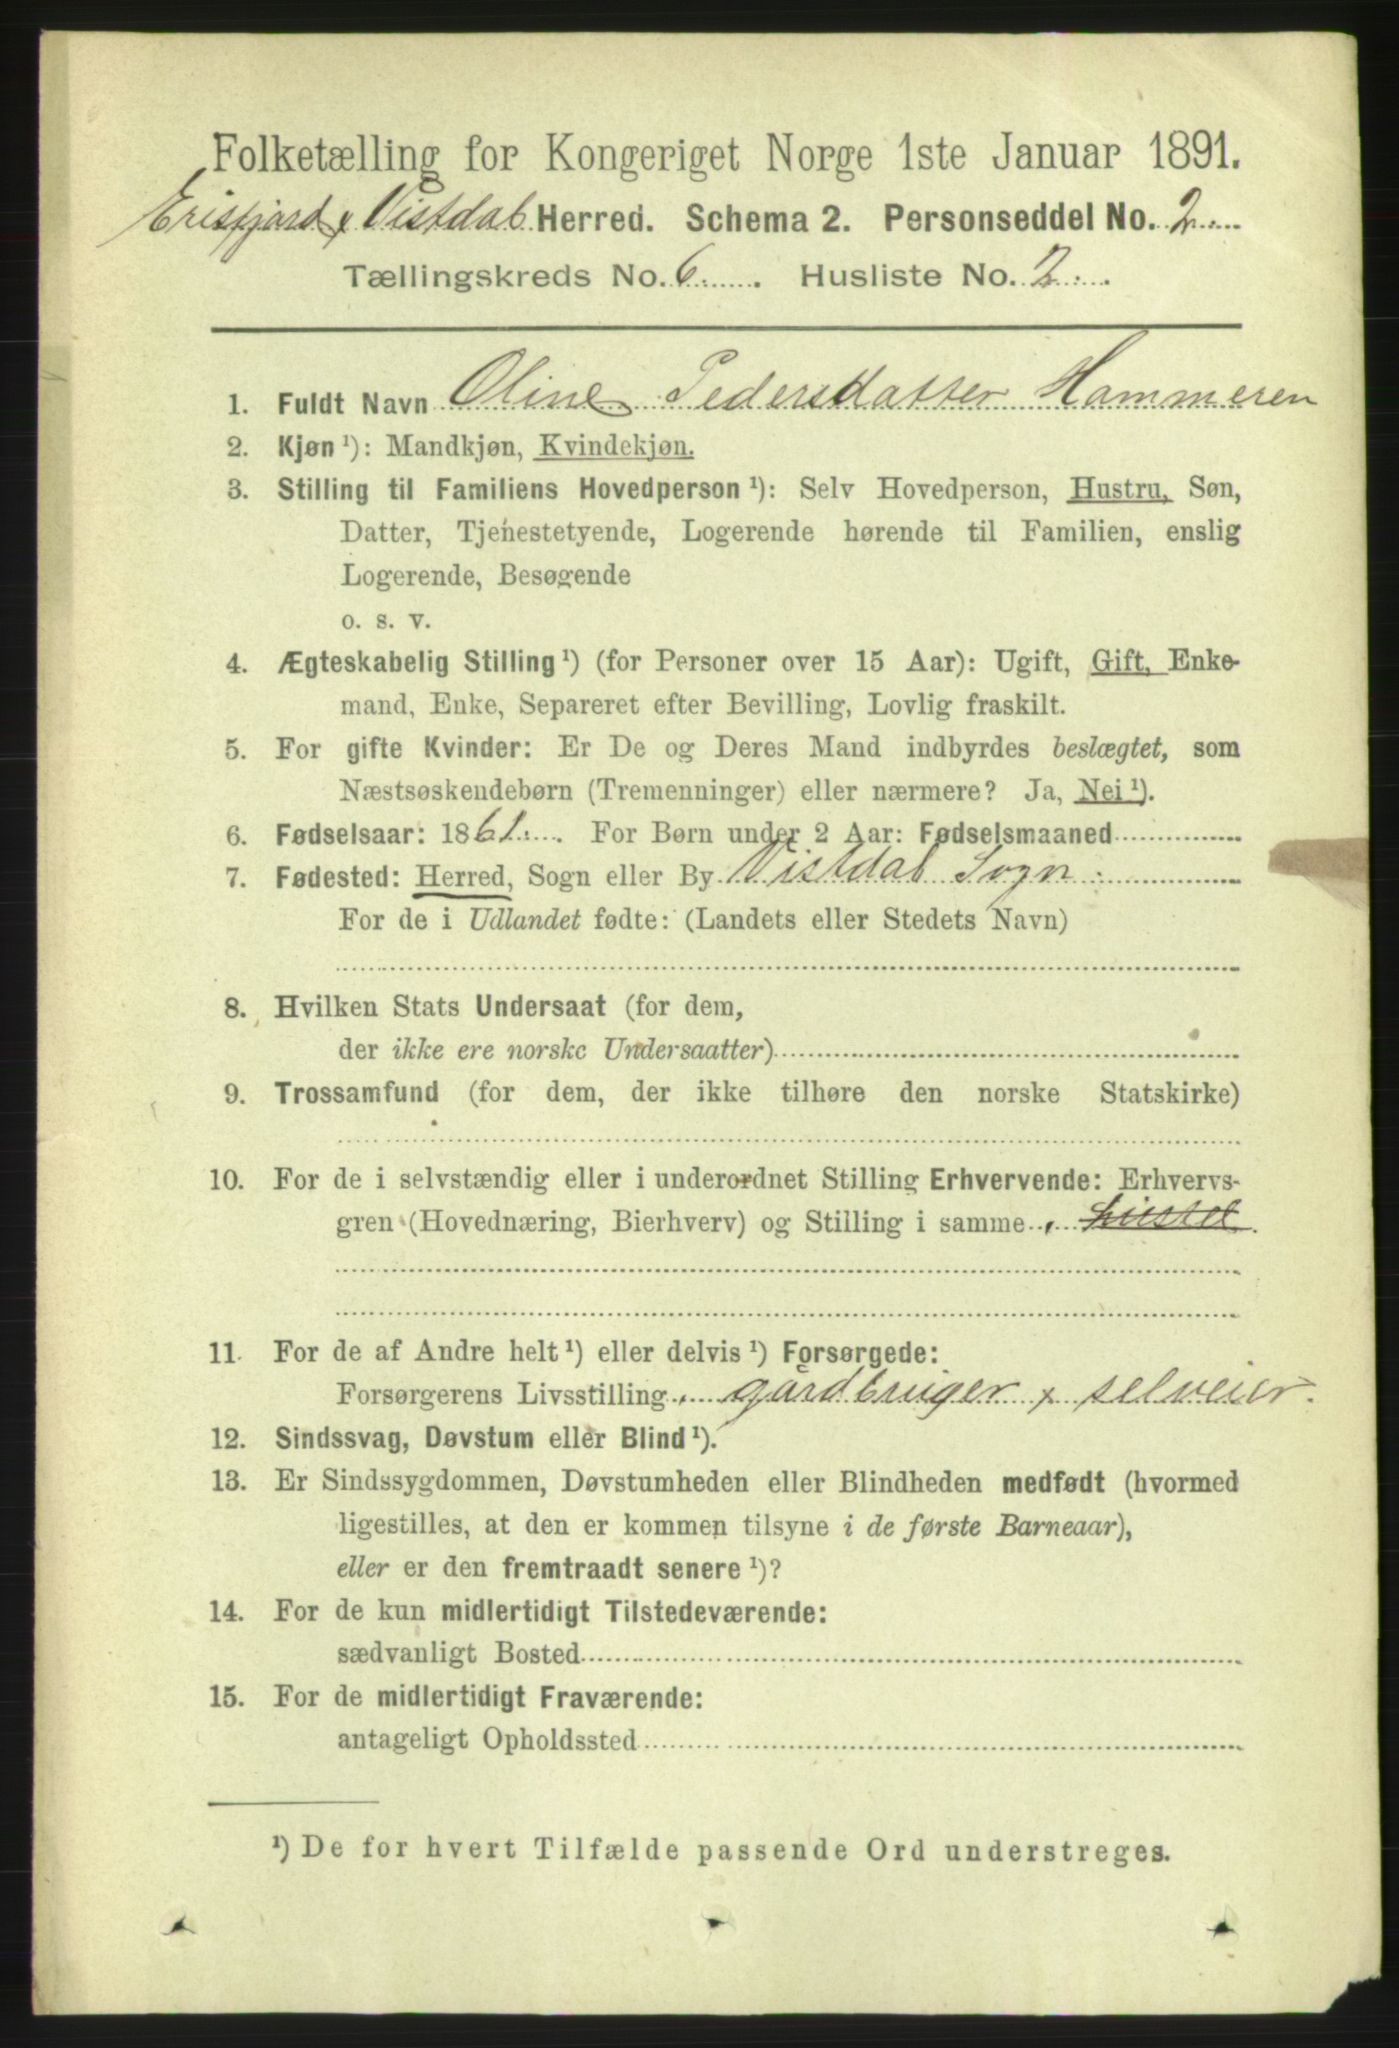 Folketælling for Kongeriget Norge 1ste Januar 1891.
Erisfjord & Vistdal Herred. Schema 2. Personseddel No. 2.
Tællingskreds No. 6. Husliste No. 2.
1. Fuldt Navn Oline Pedersdatter Hammeren
2. Kjøn ¹): Mandkjøn, Kvindekjøn.
3. Stilling til Familiens Hovedperson ¹): Selv Hovedperson, Hustru, Søn,
Datter, Tjenestetyende, Logerende hørende til Familien, enslig
Logerende, Besøgende
o. s. v.
4. Ægteskabelig Stilling ¹) (for Personer over 15 Aar): Ugift, Gift, Enke-
mand, Enke, Separeret efter Bevilling, Lovlig fraskilt.
5. For gifte Kvinder: Er De og Deres Mand indbyrdes beslægtet, som
Næstsøskendebørn (Tremenninger) eller nærmere? Ja, Nei ¹).
6. Fødselsaar: 1861. For Børn under 2 Aar: Fødselsmaaned
7. Fødested: Herred, Sogn eller By Vistdal Sogn
For de i Udlandet fødte: (Landets eller Stedets Navn)
8. Hvilken Stats Undersaat (for dem,
der ikke ere norske Undersaatter)
9. Trossamfund (for dem, der ikke tilhøre den norske Statskirke)
10. For de i selvstændig eller i underordnet Stilling Erhvervende: Erhvervs-
gren (Hovednæring, Bierhverv) og Stilling i samme
11. For de af Andre helt ¹) eller delvis ¹) Forsørgede:
Forsørgerens Livsstilling gårdbruger & selveier.
12. Sindssvag, Døvstum eller Blind ¹).
13. Er Sindssygdommen, Døvstumheden eller Blindheden medfødt (hvormed
ligestilles, at den er kommen tilsyne i de første Barneaar),
eller er den fremtraadt senere ¹)?
14. For de kun midlertidigt Tilstedeværende:
sædvanligt Bosted
15. For de midlertidigt Fraværende:
antageligt Opholdssted
¹) De for hvert Tilfælde passende Ord understreges.